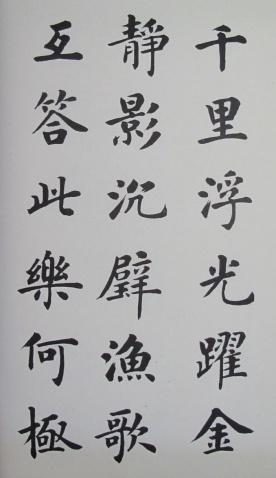 千里浮光躍金
靜影沉璧漁歌
互答此樂何極